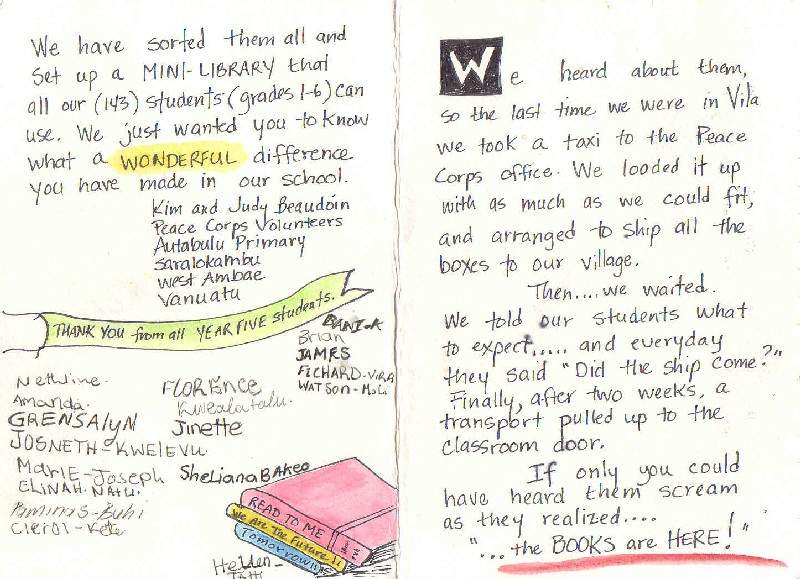 We have sorted them all and
set up a MINI-LIBRARY that
all our (143) students (grades 1-6) can
use. We just wanted you to know
what a WONDERFUL difference
you have made in our school.
Kim and Judy Beaudoin
Peace Corps Volunteers
Autabulu Primary
Saralokambu
West Ambae
Vanuatu
THANK YOU from all YEAR FIVE students.
BANI-A
Brian
JAMES
RICHARD-VIRA
WATSON
Nethline.
Amanda.
GRENSALYN
JOSNETH-KWELEVU.
Marie-Joseph
ELINAH-NATU.
FLORENCE
Kwealatalu.
Jinette
SHELIANA BAKEO
READ TO ME
We Are The Future
Tomorrow
Helden
We heard about them,
so the last time we were in Vila
we took a taxi to the Peace
Corps office. We loaded it up
with as much as we could fit,
and arranged to ship all the
boxes to our village.
Then....we waited.
We told our students what
to expect..... and everyday
they said "Did the ship come?"
Finally, after two weeks, a
transport pulled up to the
classroom door.
If only you could
have heard them scream
as they realized....
"...the BOOKS are HERE!"